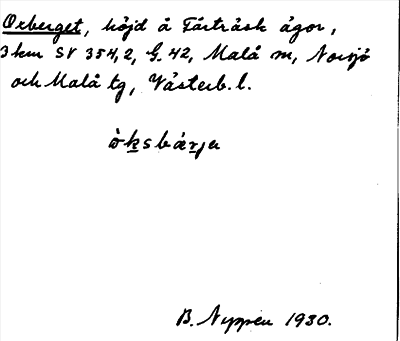 Oxberget, höjd å Fårträsk ägor,
3 km SV 354,2, G. 42, Malå m, Norsjö
och Malå tg, Västerb. l.
òksbárju
B. Nyppen 1930.